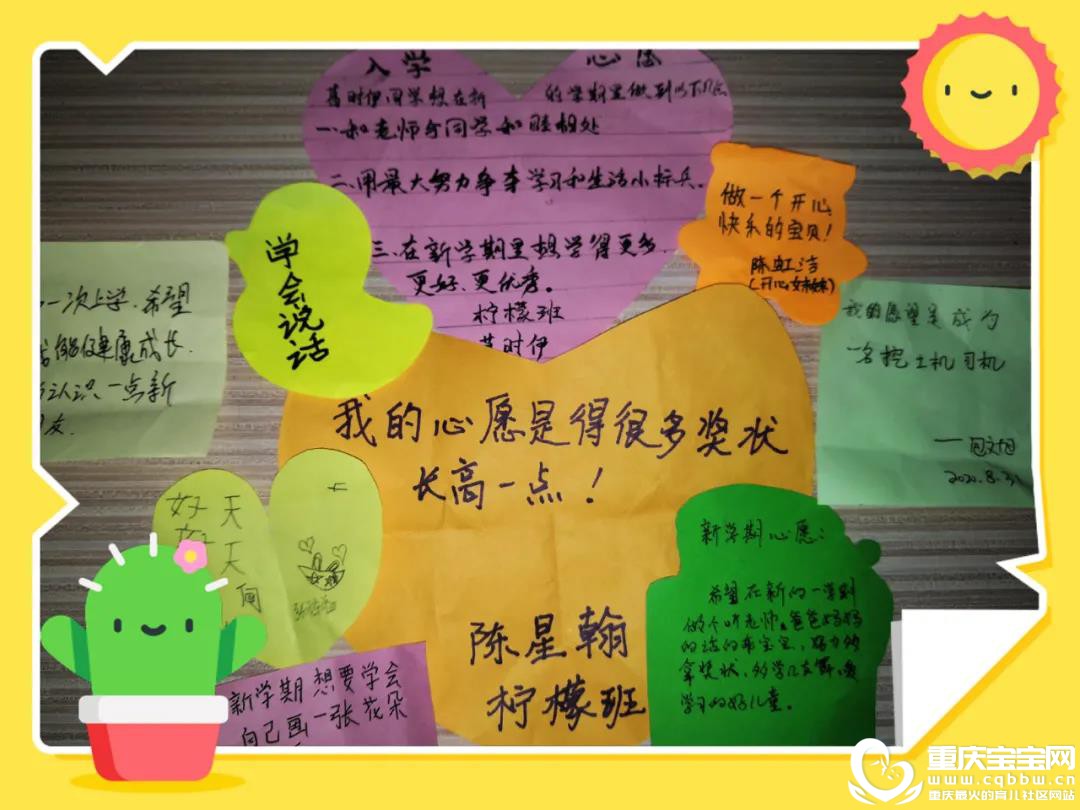 入学 心愿
时伊同学想在新 的学期里做到以下几点
一、和老师与同学和睦相处
二、用最大努力争夺学习和生活小标兵。
三、在新学期里想学得更多、
更好、更优秀。
柠檬班
时伊
学会说话
做一个开心
快乐的宝贝！
陈虹
(开心妹妹)
一次上学,希望
健康成长
认识一点新
友.
我的愿望是成为
一名挖土机司机
2020.8.31
我的心愿是得很多奖状
长高一点！
陈星翰
柠檬班
好 天
天
新学期心愿：
希望在新的一学期
做个听老师、爸爸妈妈
的话的乖宝宝，努力多
拿奖状，
学习的好儿童。
新学期想要学会
自己画一张花朵
重庆宝宝网
www.cqbbw.cn
重庆最火的育儿社区网站